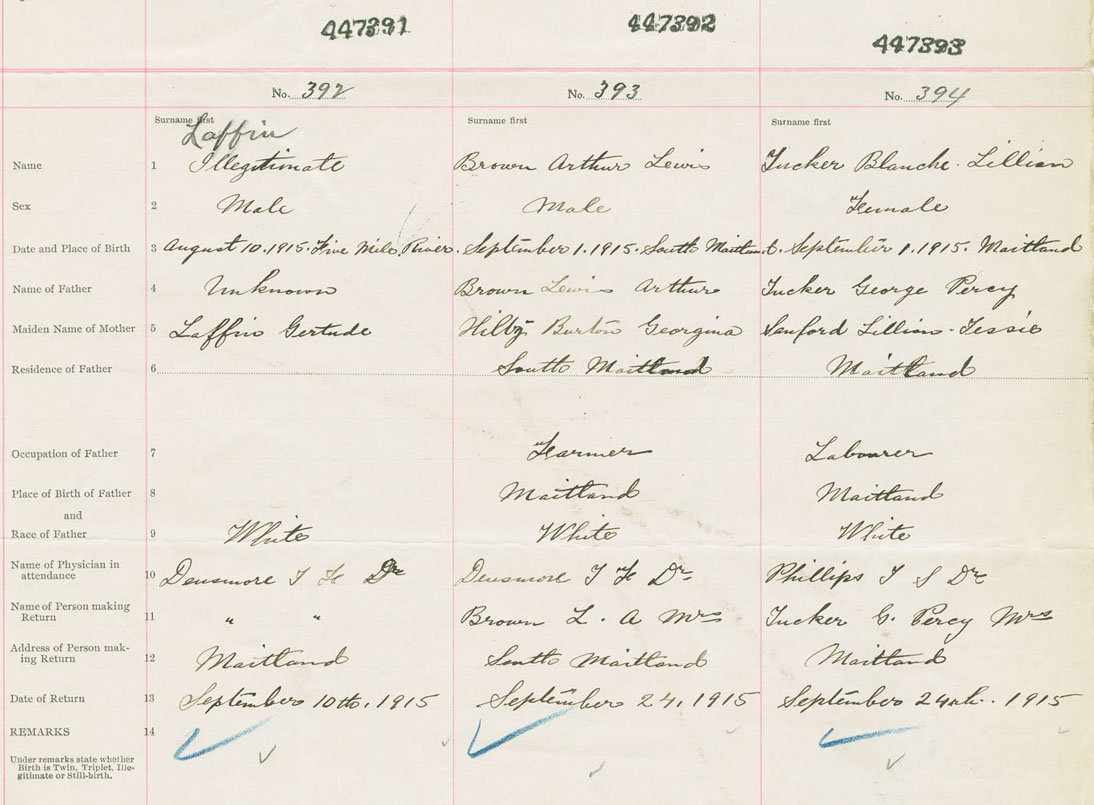 447391 447392 447393
No. 392 No. 393 No. 394
Surname first Surname first Surname first
Laffin
Name 1 Illegitimate Brown Arthur Lewis Tucker Blanche. Lillian
Sex 2 Male Male Female
Date and Place of Birth 3 August 10. 1915. Five Mile River. September 1. 1915. South Maitland. September 1. 1915. Maitland
Name of Father 4 Unknown Brown Lewis Arthur Tucker George Percy
Maiden Name of Mother 5 Laffin Gertude Burton Georgina Sanford Lillian. Jessie
Residence of Father 6 South Maitland Maitland
Occupation of Father 7 Farmer Labourer
Place of Birth of Father 8 Maitland Maitland
and
Race of Father 9 White White White
Name of Physician in
attendance 10 Densmore T F Dr Densmore T F Dr. Phillips J S Dr
Name of Person making
Return 11 " " Brown L. A Mrs Tucker G. Percy Mrs
Address of Person mak-
ing Return 12 Maitland South Maitland Maitland
Date of Return 13 September 10th. 1915 September 24, 1915 September 24th. 1915
REMARKS 14
Under remarks state whether
Birth is Twin, Triplet, Ille-
gitimate or Still-birth.